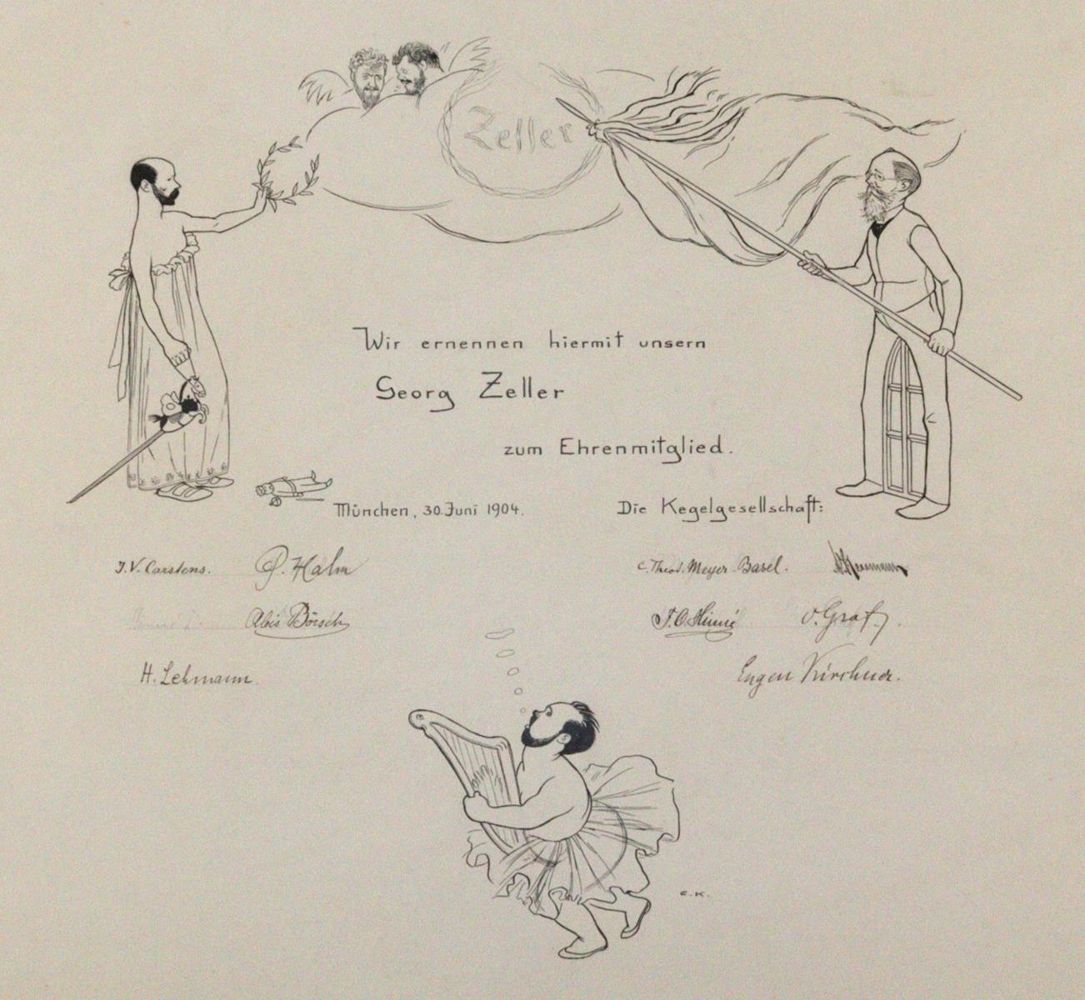 Zeller
Wir ernennen hiermit unsern
Georg Zeller
zum Ehrenmitglied.
München, 30. Juni 1904.
Die Kegelgesellschaft:
J. V. Carstens. P. Halm
C. Theod. Meyer-Basel.
Alois Börsch
O. Graf.
H. Lehmann.
Eugen Kirchner.
E. K.